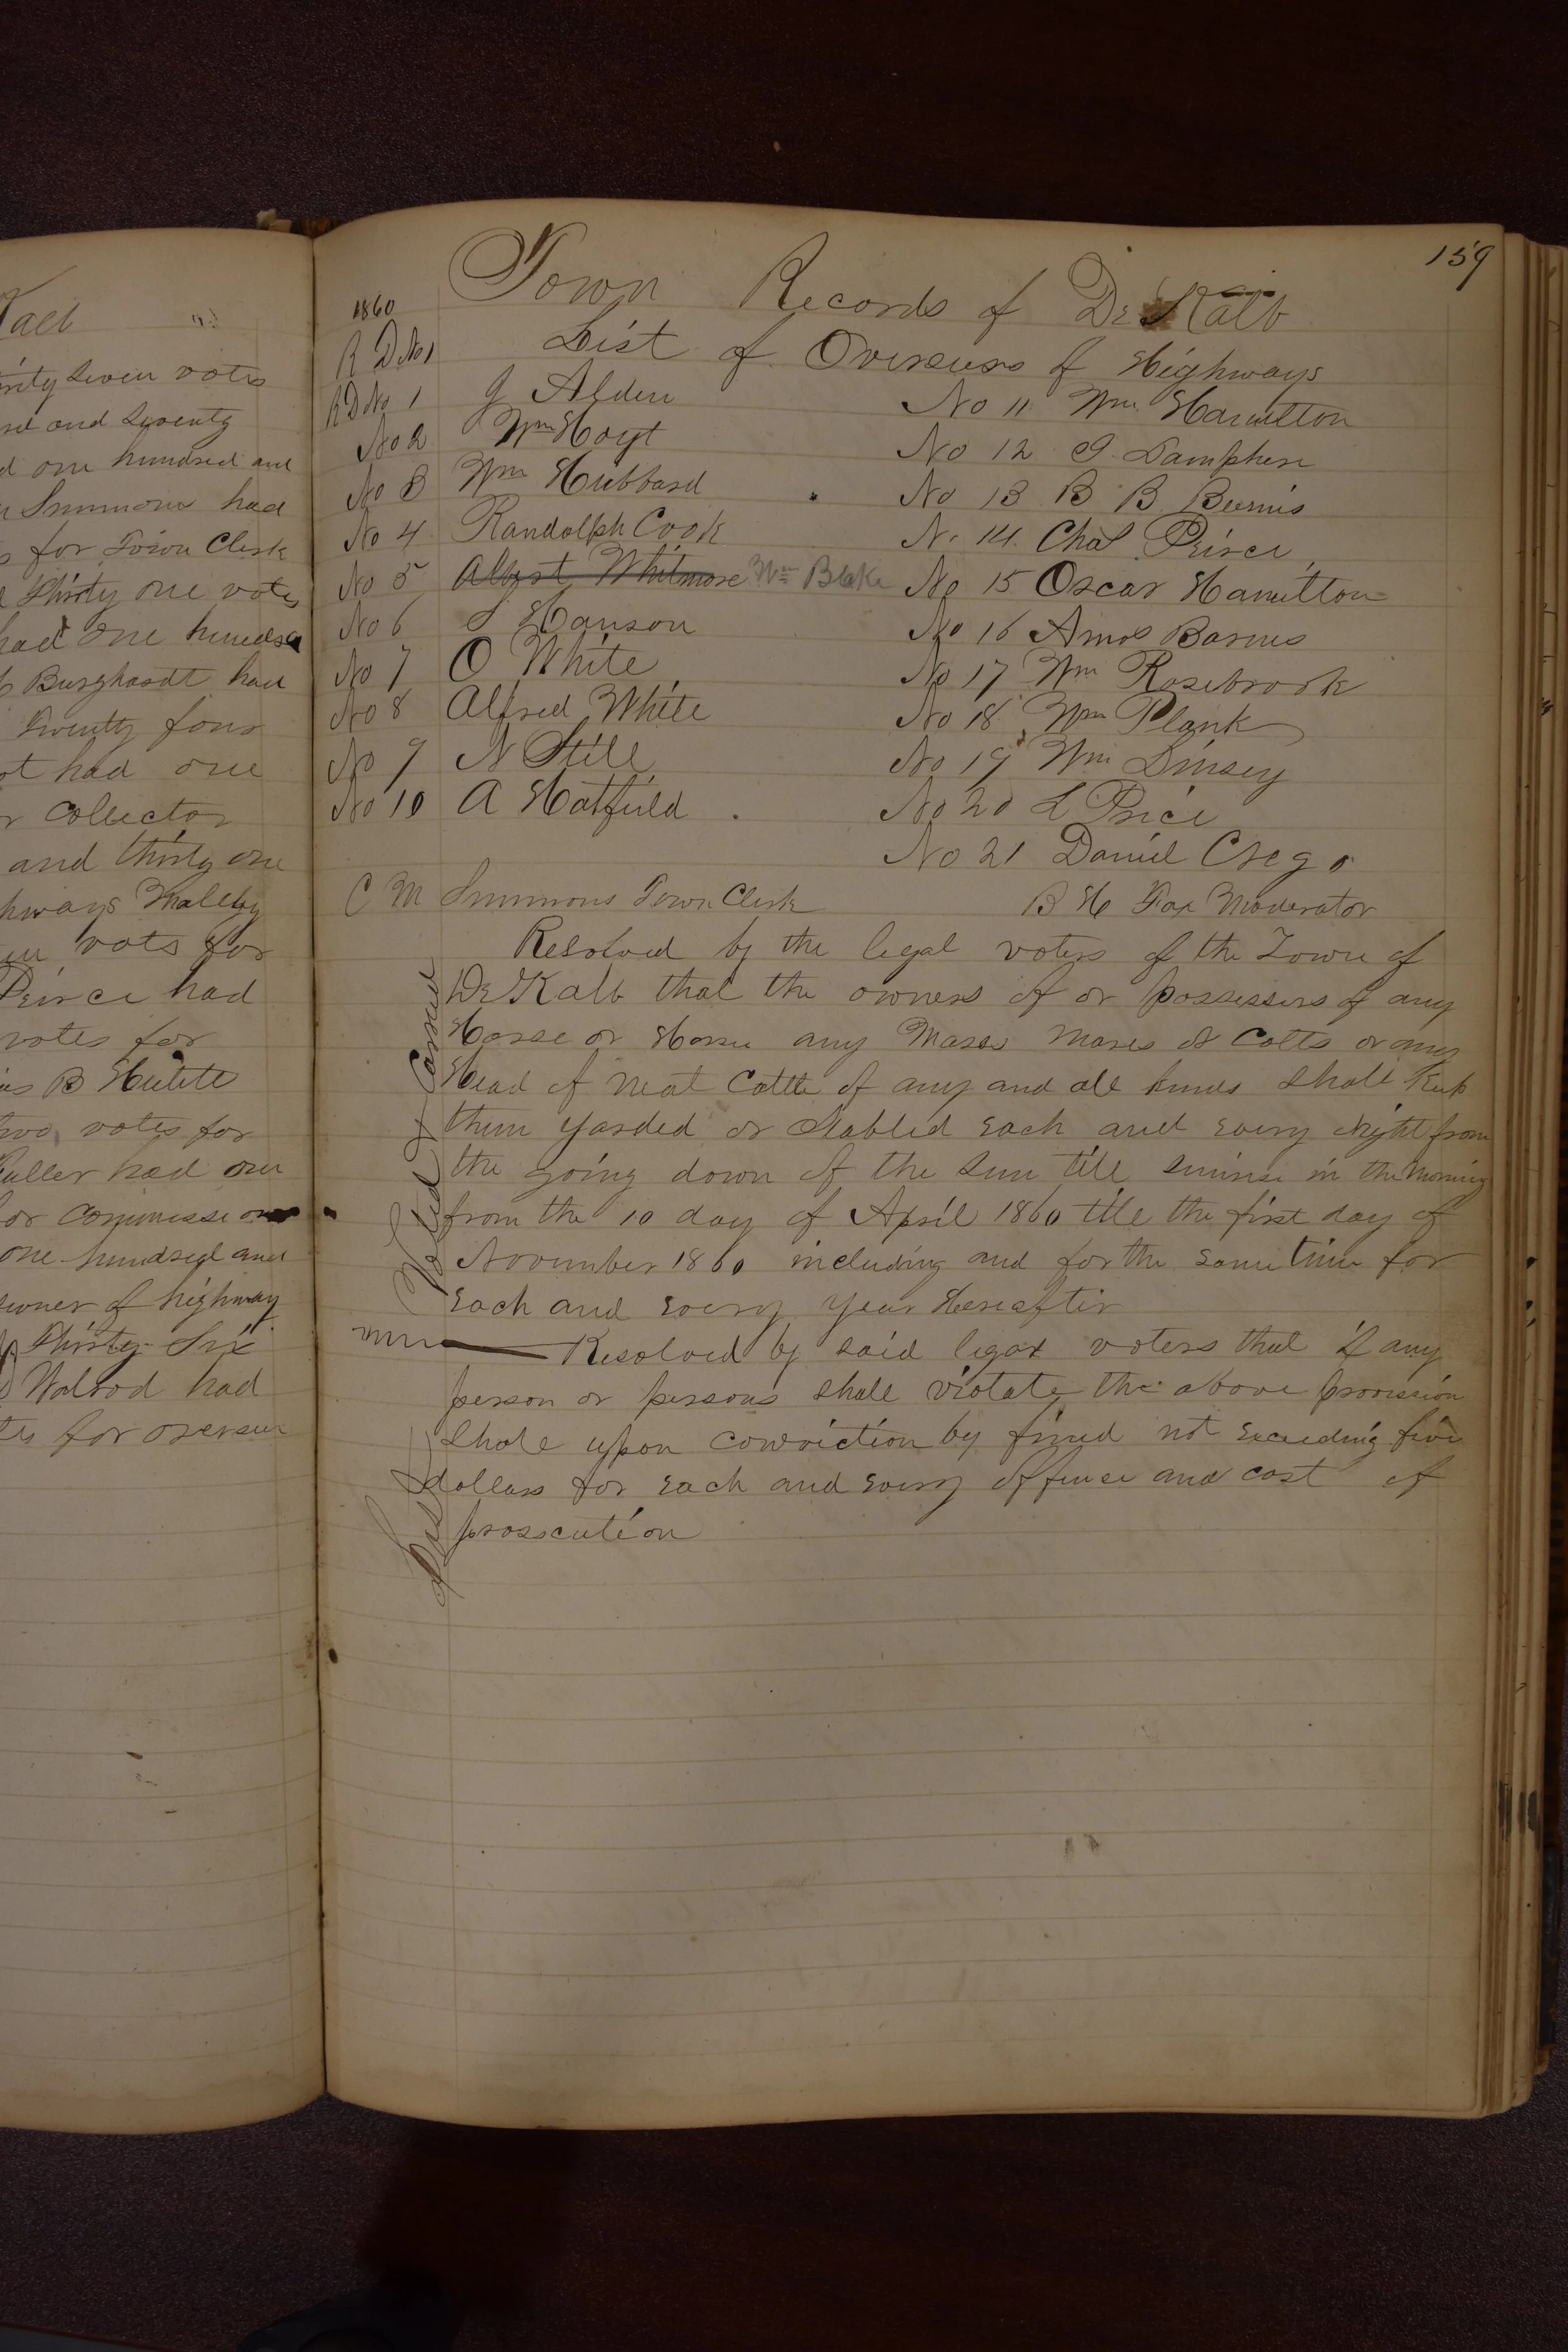 Kalb
ninty Seven votes
and Seventy
one hundred and
Simmons had
for Town Clerk
Thirty one votes
had one hundred
Burghardt had
Twenty four
had one
collector
and thirty one
Highways Maleby
vots for
Peirce had
votes for
B Hulett
two votes for
Fuller had one
for commissioner
one hundred and
of highway
Thirty Six
Walrod had
for overseer
159
Town Records of DeKalb
1860
R D No 1 List of Overseers of Highways
R D No 1 J Alden
No 2 Wm Hoyt
No 3 Wm Hubbard
No 4 Randolph Cook
No 5 Albert Whitmore Wm Blake
No 6 S Hanson
No 7 O White
No 8 Alfred White
No 9 N Still
No 10 A Hatfield
No 11 Wm Hamilton
No 12 G Lamphere
No 13 B B Bemis
N. 14 Chas Peirce
No 15 Oscar Hamilton
No 16 Amos Barnes
No 17 Wm Rosebrook
No 18 Wm Plank
No 19 Wm Linsey
No 20 L Price
No 21 Daniel Crego
C M Simmons Town Clerk B H Fax Moderator
Resolved by the legal voters of the Town of
DeKalb that the owners of or possessers of any
Horse or Horses any Mares Mares or Colts or any
Head of Neat Cattle of any and all kinds Shall Keep
them yarded or Stabled each and every night from
the going down of the Sun till sunrise in the Morning
from the 10 day of April 1860 till the first day of
November 1860 including and for the same time for
each and every year Hereafter
Resolved by said legal voters that if any
person or persons shall violate the above provision
Shall upon conviction by fined not exceeding five
dollars for each and every offence and cost of
prosecution